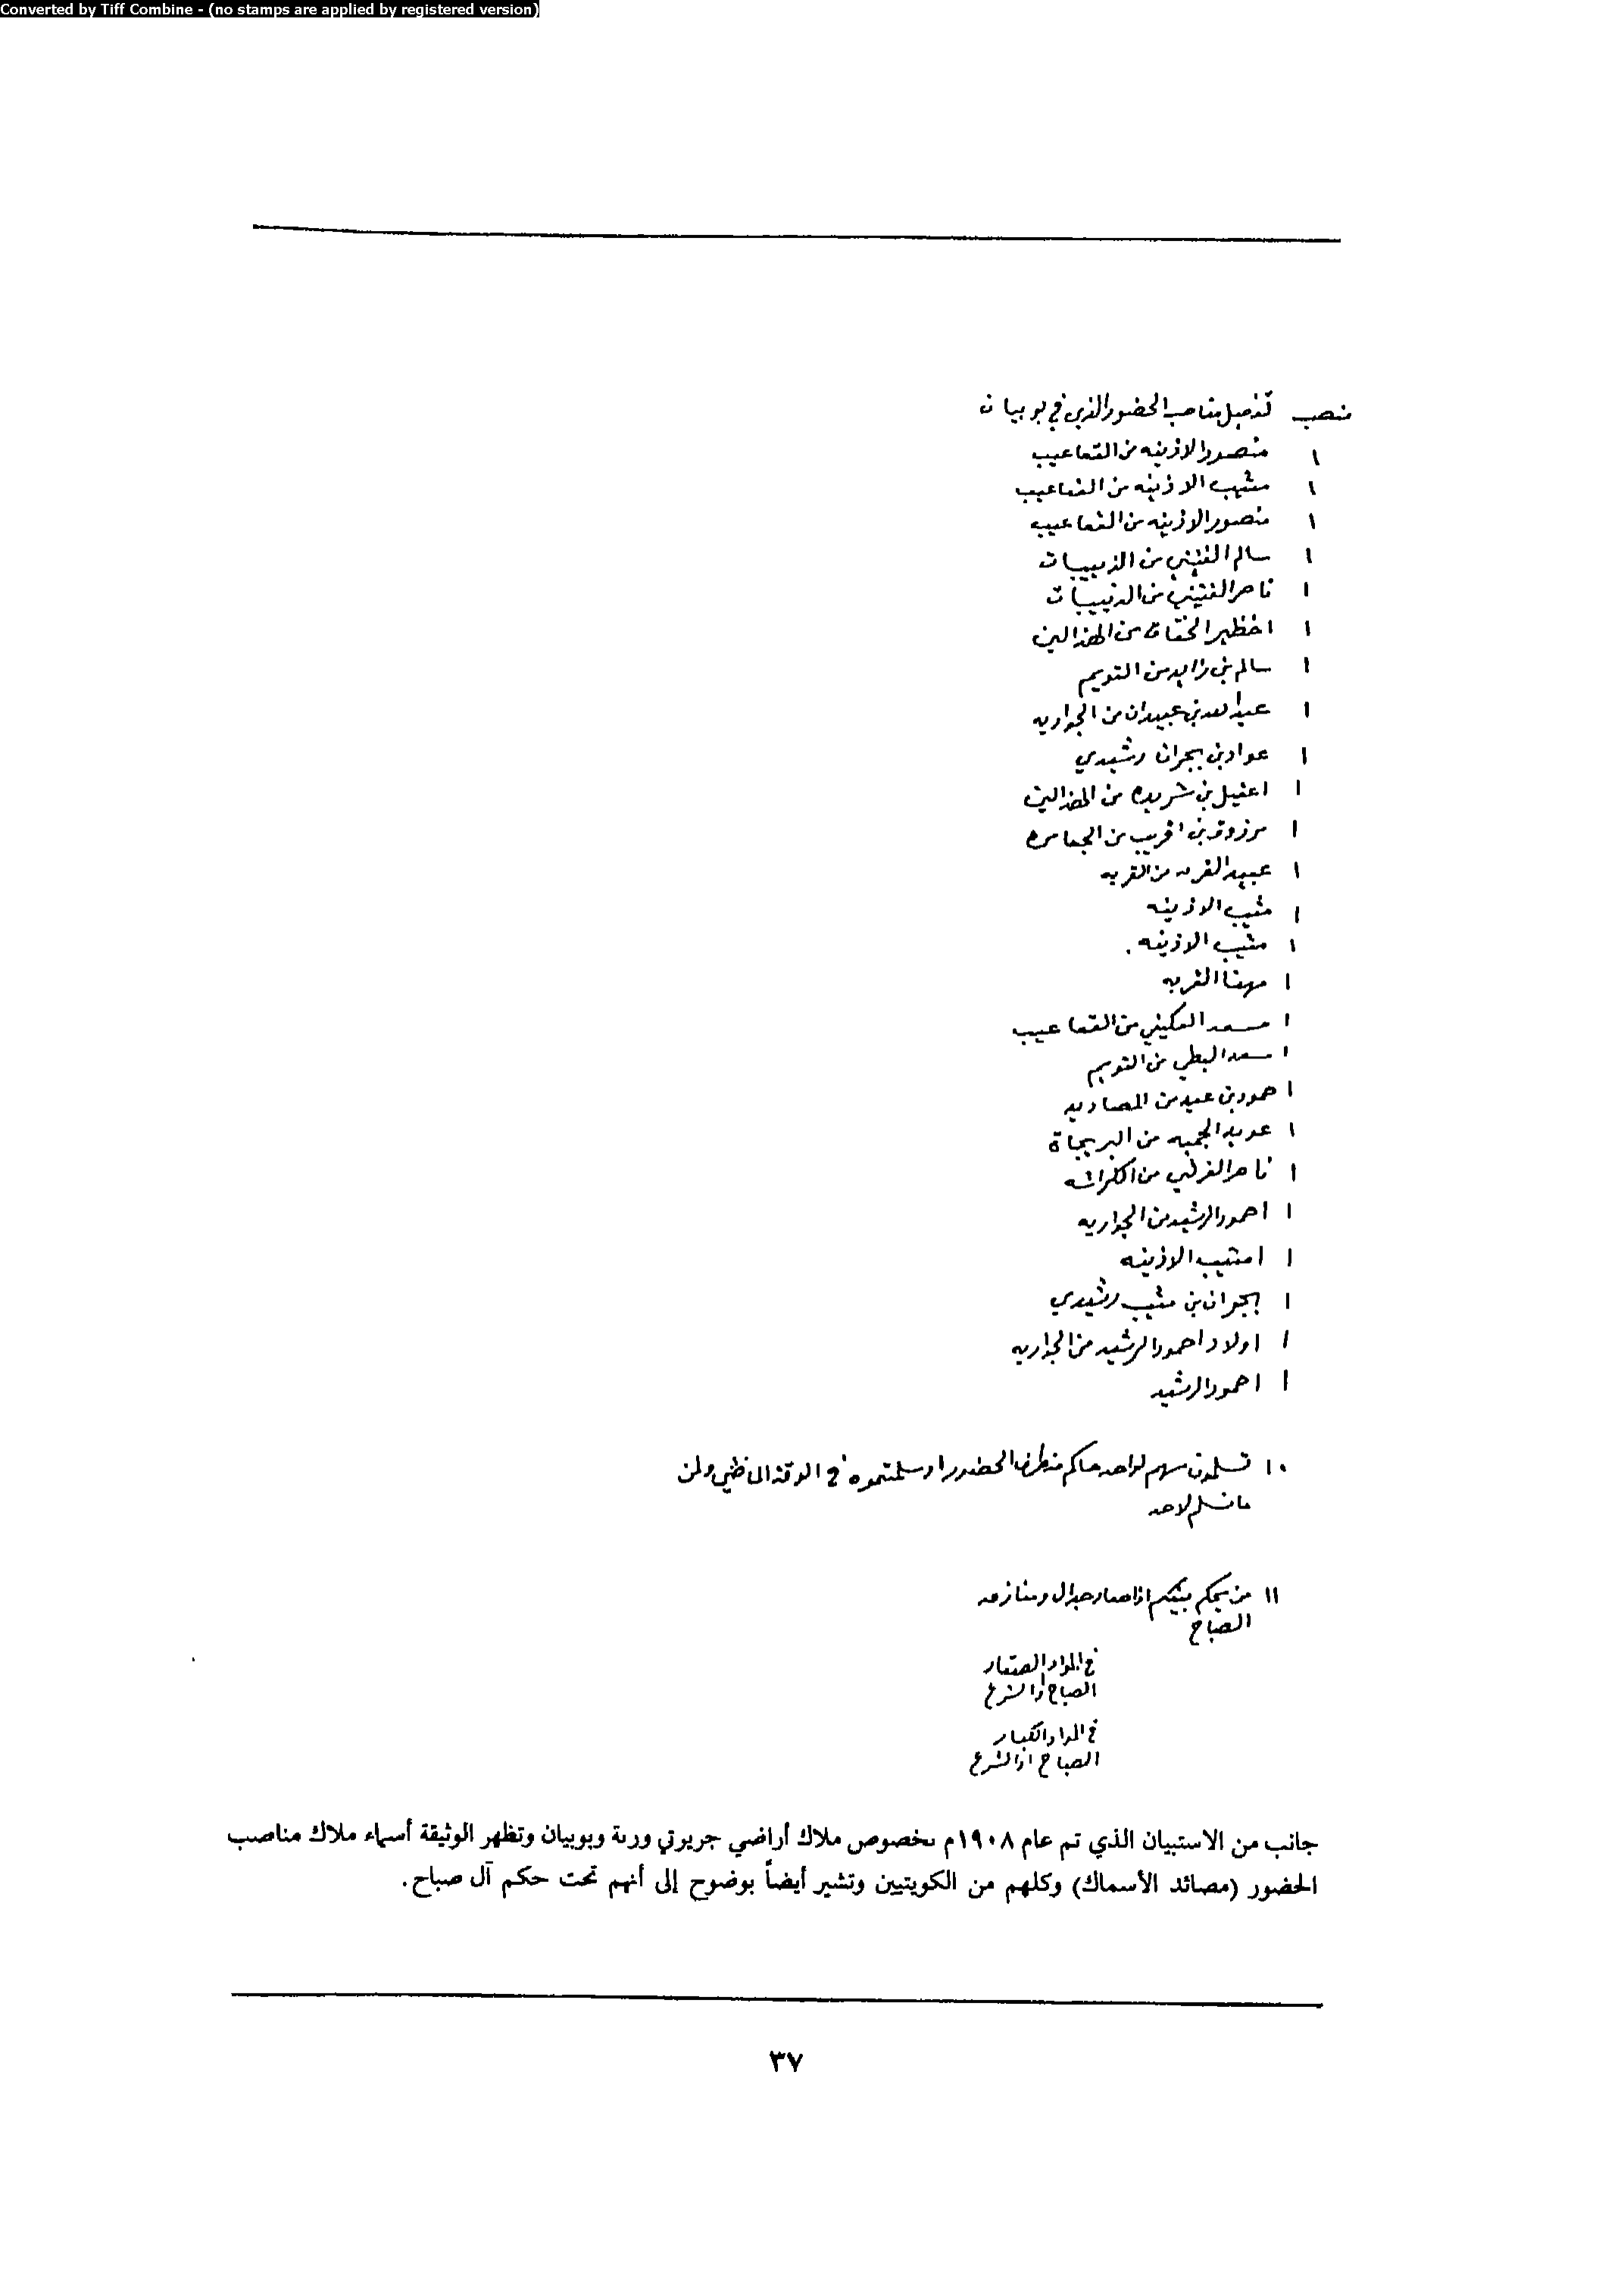 Converted by Tiff Combine - (no stamps are applied by registered version)
منصب تفصيل مناصب الحضور الذي في بوبيان
١ منصور الاذينه من القماعيب
١ مثيب الاذينه من القماعيب
١ منصور الاذينه من القماعيب
١ سالم الفنيني من الذبيبات
١ ناصر الفنيني من الذبيبات
١ اخظير من الهذالين
١ سالم بن زايد من التويم
١ عبدالله بن عبيدان من الجواريه
١ عواد بن بجران رشيدي
١ اعقيل بن شريده من الهذالين
١ مرزوق بن اقريب من الجماسره
١ عبيد القريه من القريه
١ مثيب الاذينه
١ مثيب الاذينه .
١ مهنا القريه
١ مسعد العكيني من القماعيب
١ سعد البطي من التويم
١ حمود بن عيد من
١ عويد من البريجاة
١ ناصر من
١ احمود الرشيد من الجواريه
١ امثيب الاذينه
١ بجران بن مثيب رشيدي
١ اولاد احمود الرشيد من الجواريه
١ احمود الرشيد
١٠ تسلمون سهم لواحد حاكم من طرف الحضور او سلمتموه في الوقت الماظي ولمن
ما نسلم لاحد
١١ من يحكم بينكم اذا صار جدال ومنازعه
الصباح
في المواد الصغار
الصباح او الشرع
في المواد الكبار
الصباح او الشرع
جانب من الاستبيان الذي تم عام ١٩٠٨م بخصوص ملاك أراضي جزيرتي وربة وبوبيان وتظهر الوثيقة أسماء ملاك مناصب
الحضور (مصائد الأسماك) وكلهم من الكويتيين وتشير أيضاً بوضوح إلى أنهم تحت حكم آل صباح.
٣٧